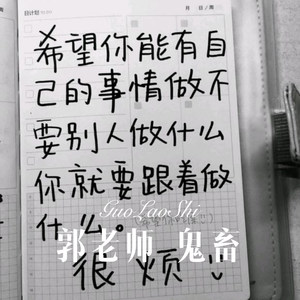 日计划
月 日/周
希望你能有自
己的事情做不
要别人做什么
你就要跟着做
什么。
GuoLaoShi
郭老师 鬼畜
很烦